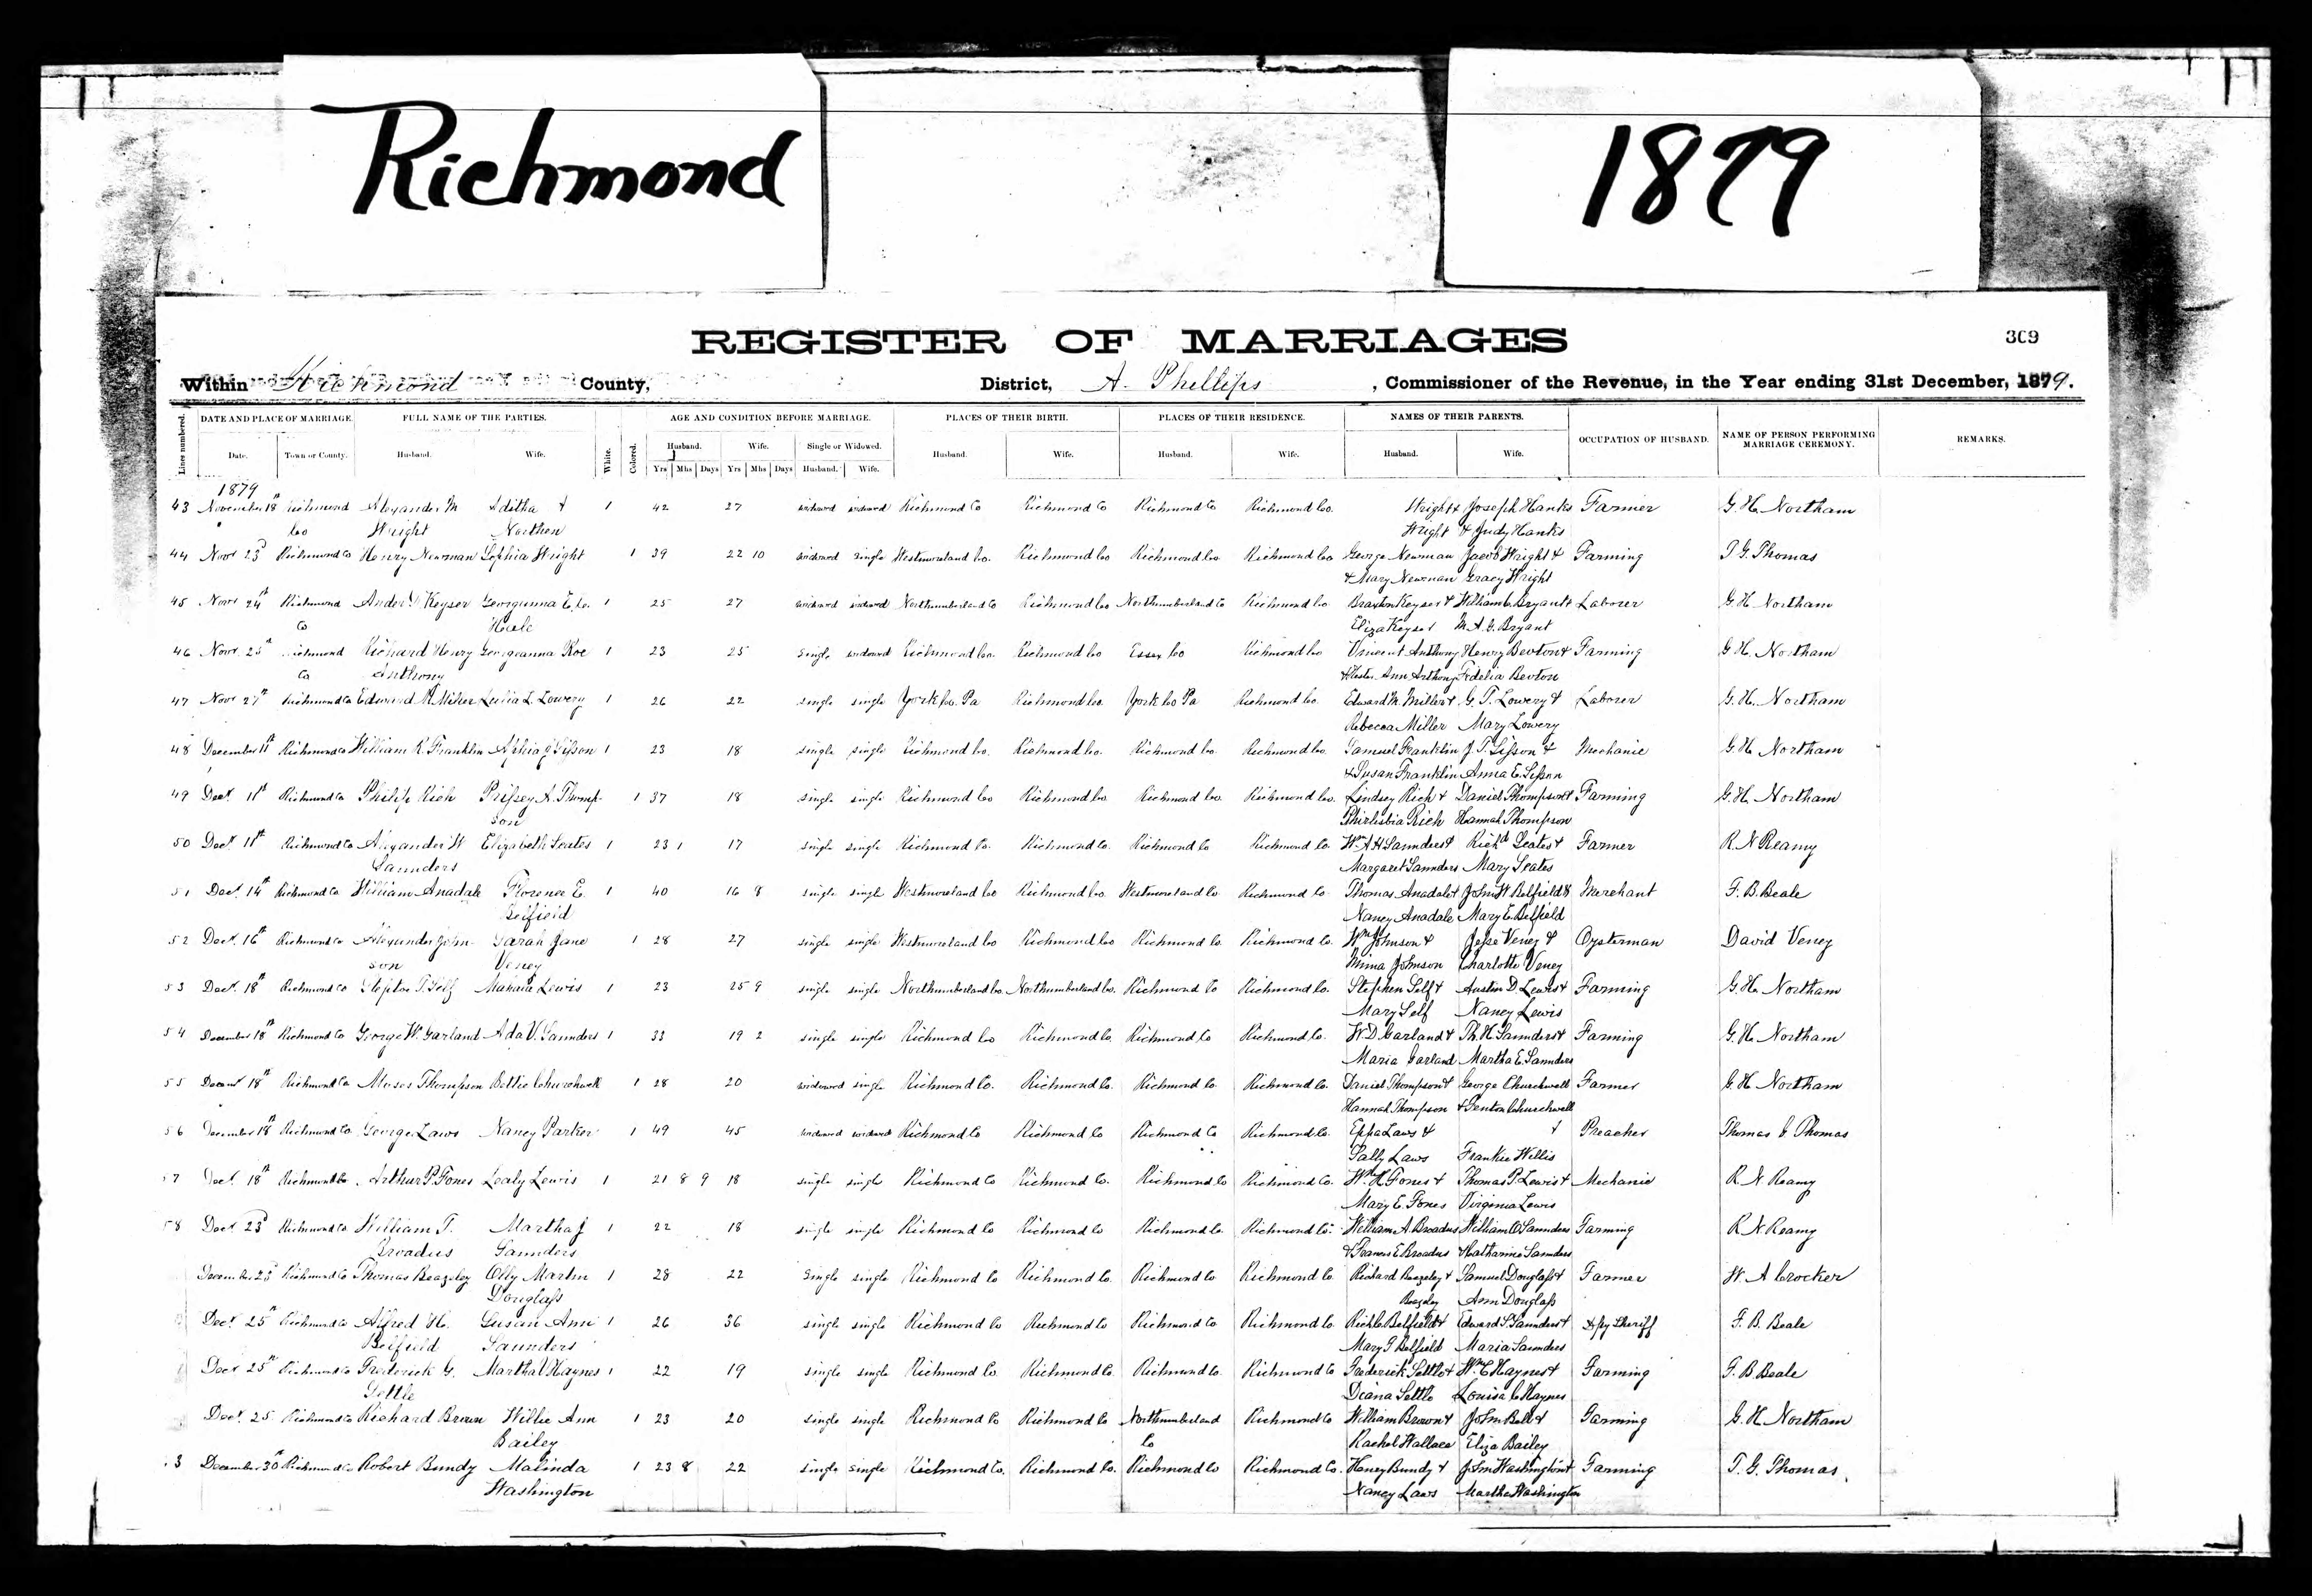 Richmond
1879
REGISTER OF MARRIAGES
369
Within Richmond County, District, A. Phillips, Commissioner of the Revenue, in the Year ending 31st December, 1879.
Lines numbered. DATE AND PLACE OF MARRIAGE. FULL NAME OF THE PARTIES. White. Colored. AGE AND CONDITION BEFORE MARRIAGE. PLACES OF THEIR BIRTH. PLACES OF THEIR RESIDENCE. NAMES OF THEIR PARENTS. OCCUPATION OF HUSBAND. NAME OF PERSON PERFORMING MARRIAGE CEREMONY. REMARKS.
Date. Town or County. Husband. Wife. Husband. Wife. Single or Widowed. Husband. Wife. Husband. Wife. Husband. Wife.
Yrs Mhs Days Yrs Mhs Days Husband. Wife.
1879
43 November 18th Richmond Alexander M Editha 1 42 27 widowed widowed Richmond Co Richmond Co Richmond Co Richmond Co. Wright & Joseph Hanks Farmer G. H. Northam
Co Wright Northen Wright & Judy Hanks
44 Novr 23d Richmond Co Henry Newman Sophia Wright 1 39 22 10 widowed single Westmoreland Co. Richmond Co Richmond Co. Richmond Co George Newman Jacob Wright & Farming T. G. Thomas
& Mary Newman Gracy Wright
45 Novr 24th Richmond Keyser Georgianna 1 25 27 widowed widowed Northumberland Co Richmond Co Northumberland Co Richmond Co Braxton Keyser & William C. Bryant & Laborer G. H. Northam
Co Eliza Keyser M. A. G. Bryant
46 Novr 25th Richmond Richard Henry Georgeanna Roe 1 23 25 single widowed Richmond Co. Richmond Co Essex Co Richmond Co Vincent Anthony Henry Bevton & Farming G. H. Northam
Co Anthony & Hester Ann Anthony Fidelia Bevton
47 Novr 27th Richmond Co Edward M. Miller Lucia L. Lowery 1 26 22 single single York Co. Pa Richmond Co. York Co Pa Richmond Co. Edward M. Miller & G. T. Lowery & Laborer G. H. Northam
Rebecca Miller Mary Lowery
48 December 11th Richmond Co William R. Franklin Sisson 1 23 18 single single Richmond Co. Richmond Co. Richmond Co Richmond Co. Samuel Franklin J. T. Sisson & Mechanic G. H. Northam
& Susan Franklin Anna E. Sisson
49 Decr. 11th Richmond Co Philip Rich Prissey A. Thomp- 1 37 18 single single Richmond Co Richmond Co. Richmond Co. Richmond Co. Lindsey Rich & Daniel Thompson & Farming G. H. Northam
son Rich Hannah Thompson
50 Decr. 11th Richmond Co Alexander W Elizabeth Scates 1 23 1 17 single single Richmond Co. Richmond Co. Richmond Co Richmond Co. Wm. A H Saunders & Richd Scates & Farmer R. N Reamy
Saunders Margaret Saunders Mary Scates
51 Decr. 14th Richmond Co William Anadale Florence E. 1 40 16 8 single single Westmoreland Co Richmond Co. Westmoreland Co Richmond Co Thomas Anadale & John W. Belfield & Merchant F. B. Beale
Belfield Nancy Anadale Mary E. Belfield
52 Decr. 16th Richmond Co Alexander John- Sarah Jane 1 28 27 single single Westmoreland Co Richmond Co Richmond Co. Richmond Co. Wm Johnson & Jesse Veney & Oysterman David Veney
son Veney Mima Johnson Charlotte Veney
53 Decr. 18th Richmond Co Self Lewis 1 23 25 9 single single Northumberland Co. Northumberland Co. Richmond Co Richmond Co. Stephen Self & Austin D. Lewis & Farming G. H. Northam
Mary Self Nancy Lewis
54 December 18th Richmond Co George W. Garland Ada V. Saunders 1 33 19 2 single single Richmond Co Richmond Co. Richmond Co Richmond Co. W. D. Garland & Th. H. Saunders & Farming G. H. Northam
Maria Garland Martha E. Saunders
55 18th Richmond Co Moses Thompson Bettie Churchwell 1 28 20 widowed single Richmond Co. Richmond Co. Richmond Co Richmond Co. Daniel Thompson & George Churchwell Farmer G. H. Northam
Hannah Thompson & Churchwell
56 December 18th Richmond Co. George Laws Nancy Parker 1 49 45 widowed widowed Richmond Co Richmond Co Richmond Co Richmond Co. Eppa Laws & & Preacher Thomas G. Thomas
Sally Laws Frankie Willis
57 Decr. 18th Richmond Co Arthur P. Fones Lealy Lewis 1 21 8 9 18 single single Richmond Co Richmond Co. Richmond Co Richmond Co. Wm. H. Fones & Thomas P. Lewis & Mechanic R. N. Reamy
Mary E. Fones Virginia Lewis
58 Decr. 23d Richmond Co William T. Martha J 1 22 18 single single Richmond Co Richmond Co Richmond Co. Richmond Co. William A. Broadus William O. Saunders Farming R. N. Reamy
Broadus Saunders & Frances E. Broadus & Katharine Saunders
Richmond Co Thomas Beazeley Olly Martin 1 28 22 single single Richmond Co Richmond Co. Richmond Co Richmond Co. Richard Beazeley & Samuel Douglass & Farmer W. A Crocker
Douglass Beazeley Ann Douglass
Decr. 25th Richmond Co Alfred H. Susan Ann 1 26 36 single single Richmond Co Richmond Co Richmond Co Richmond Co. Belfield & Edward S. Saunders & Depy Sheriff F. B. Beale
Belfield Saunders Mary F Belfield Maria Saunders
Decr 25th Richmond Co Frederick G. Martha V Haynes 1 22 19 single single Richmond Co. Richmond Co. Richmond Co. Richmond Co Frederick Settle & Wm. C. Haynes & Farming F. B. Beale
Settle Diana Settle Louisa C. Haynes
Decr. 25 Richmond Co Richard Brown Willie Ann 1 23 20 single single Richmond Co Richmond Co Northumberland Richmond Co William Brown & John Ball & Farming G. H. Northam
Bailey Co Rachel Wallace Eliza Bailey
3 December 30th Richmond Co Robert Bundy Malinda 1 23 8 22 single single Richmond Co. Richmond Co. Richmond Co Richmond Co. Henry Bundy & John Washington & Farming T. G. Thomas.
Washington Nancy Laws Martha Washington